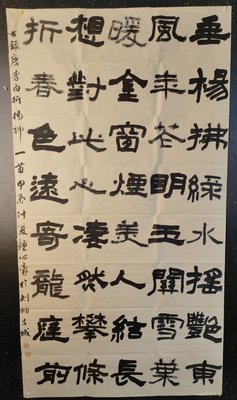 垂楊拂綠水搖艷東
風年花明玉關雪葉
暖金窗煙美人結長
想對此心淒然攀條
折春色遠寄龍庭前
錄唐李白折楊柳一首甲辰仲夏鍾心豪於古城